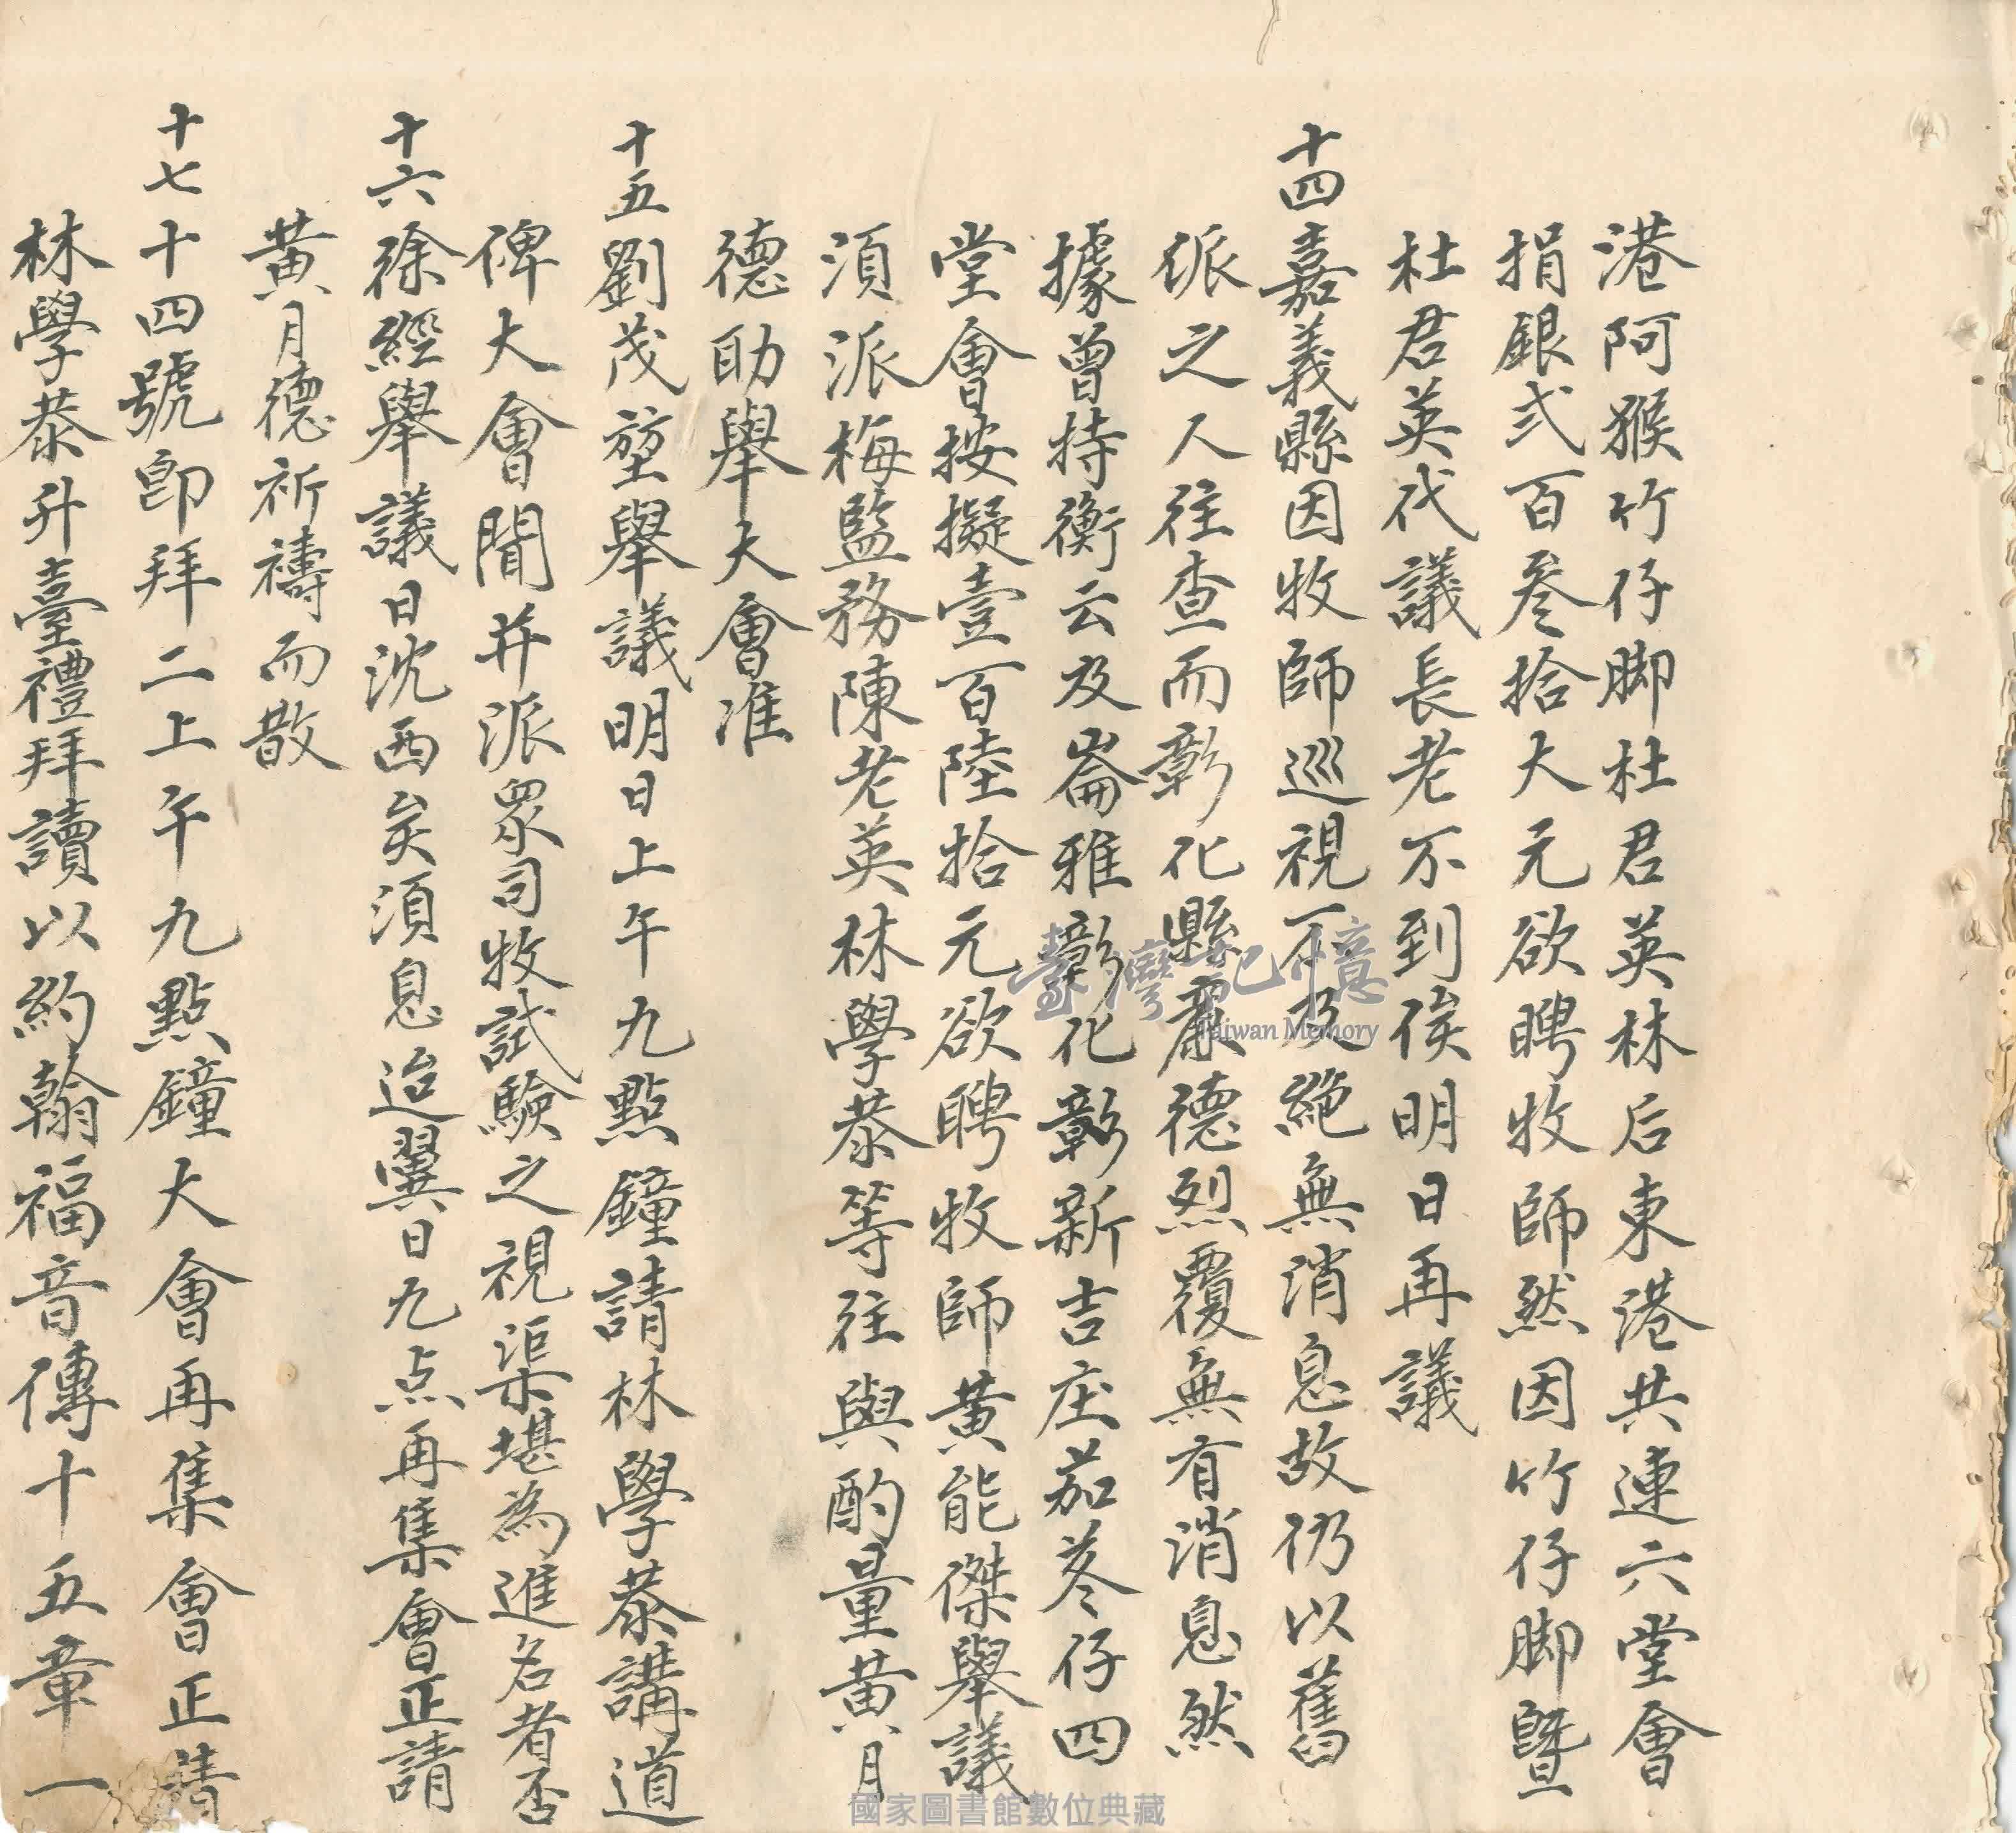 港阿猴竹仔脚杜君英林后東港共連六堂會
捐銀弍百叁拾大元欲聘牧師然因竹仔脚暨
杜君英代議長老不到俟明日再議
十四嘉義縣因牧師巡視不及絕無消息故仍以舊
派之人往查而彰化縣嚴德烈覆無有消息然
據曾持衡云及崙雅彰化彰新吉庄茄苳仔四
堂會按擬壹百陸拾元欲聘牧師黃能傑舉議
須派梅監務陳老英林學恭等往與酌量黃月
德助舉大會准
十五劉茂堃舉議明日上午九點鐘請林學恭講道
俾大會聞并派眾司牧試驗之視渠堪為進名者否
十六徐經舉議日沈西矣須息迨翼日九点再集會正請
黃月德祈禱而散
十七十四號即拜二上午九點鐘大會再集會正請
林學恭升臺禮拜讀以約翰福音傳十五章一
臺灣記憶
Taiwan Memory
國家圖書館數位典藏